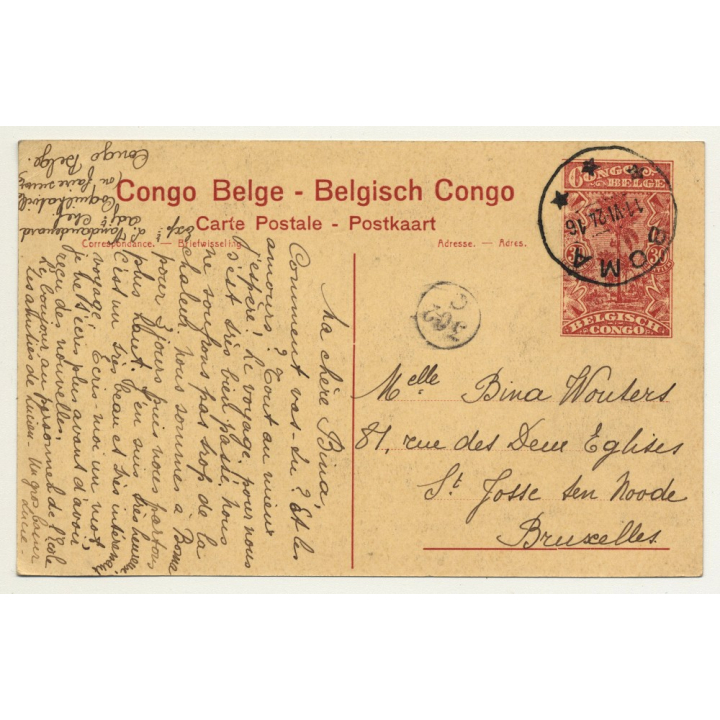 Congo Belge - Belgisch Congo
Carte Postale - Postkaart
Correspondance. — Briefwisseling.
Adresse. — Adres.
CONGO BELGE
BELGISCH CONGO
BOMA
302
C
Melle Bina Wouters
81, rue des Deux Eglises
St Josse ten Noode
Bruxelles.
Ma chère Bina,
Comment vas-tu ? Et les
amours ? Tout au mieux
j'espère ! Le voyage pour nous
s'est très bien passé, nous
ne souffrons pas trop de la
chaleur. Nous sommes à Boma
pour 3 jours puis nous partons
plus haut. J'en suis très heureuse
c'est un très beau et très intéressant
voyage. Ecris-moi un mot,
je ne t'écris plus avant d'avoir
reçu des nouvelles.
Le bonjour au personnel de l'Ecole
Les amitiés de Lucien. Un gros baiser
Lucie
adjt chef
Coquilhatville
(ou faire suivre)
Congo Belge.